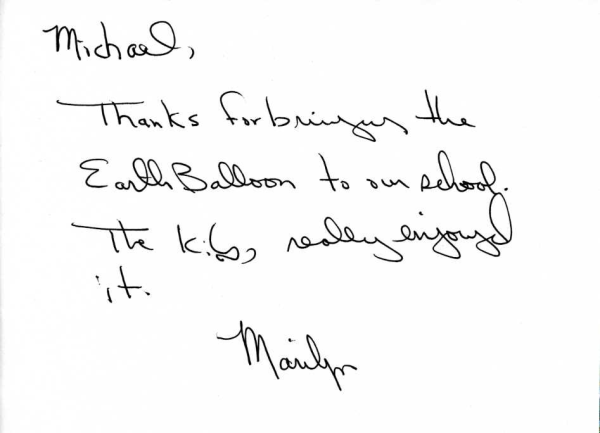 Michael,
Thanks for bringing the
Earth Balloon to our school.
The kids, really enjoyed
it.
Marilyn